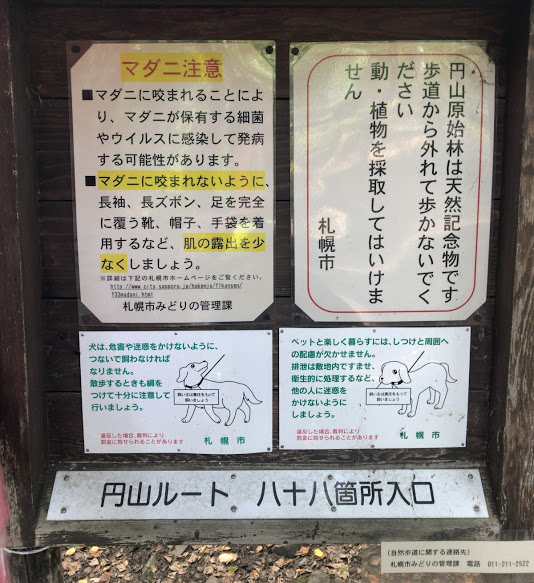 マダニ注意
■マダニに咬まれることによ
り、マダニが保有する細菌
やウイルスに感染して発病
する可能性があります。
■マダニに咬まれないように、
長袖、長ズボン、足を完全
に覆う靴、帽子、手袋を着
用するなど、肌の露出を少
なくしましょう。
※詳細は下記の札幌市ホームページをご覧ください。
http://www.city.sapporo.jp/hokenjo/f1kansen/
f33madani.html
札幌市みどりの管理課
円山原始林は天然記念物です
歩道から外れて歩かないでく
ださい
動・植物を採取してはいけま
せん
札幌市
犬は、危害や迷惑をかけないように、
つないで飼わなければ
なりません。
散歩するときも綱を
つけて十分に注意して
行いましょう。
飼い主は責任をもって
飼いましょう
違反した場合、裁判により
罰金に処せられることがあります
札幌市
ペットと楽しく暮らすには、しつけと周囲へ
の配慮が欠かせません。
排泄は敷地内ですませ、
衛生的に処理するなど、
他の人に迷惑を
かけないように
しましょう。
飼い主は責任をもって
飼いましょう
違反した場合、裁判により
罰金に処せられることがあります
札幌市
円山ルート 八十八箇所入口
(自然歩道に関する連絡先)
札幌市みどりの管理課 電話 011-211-2522